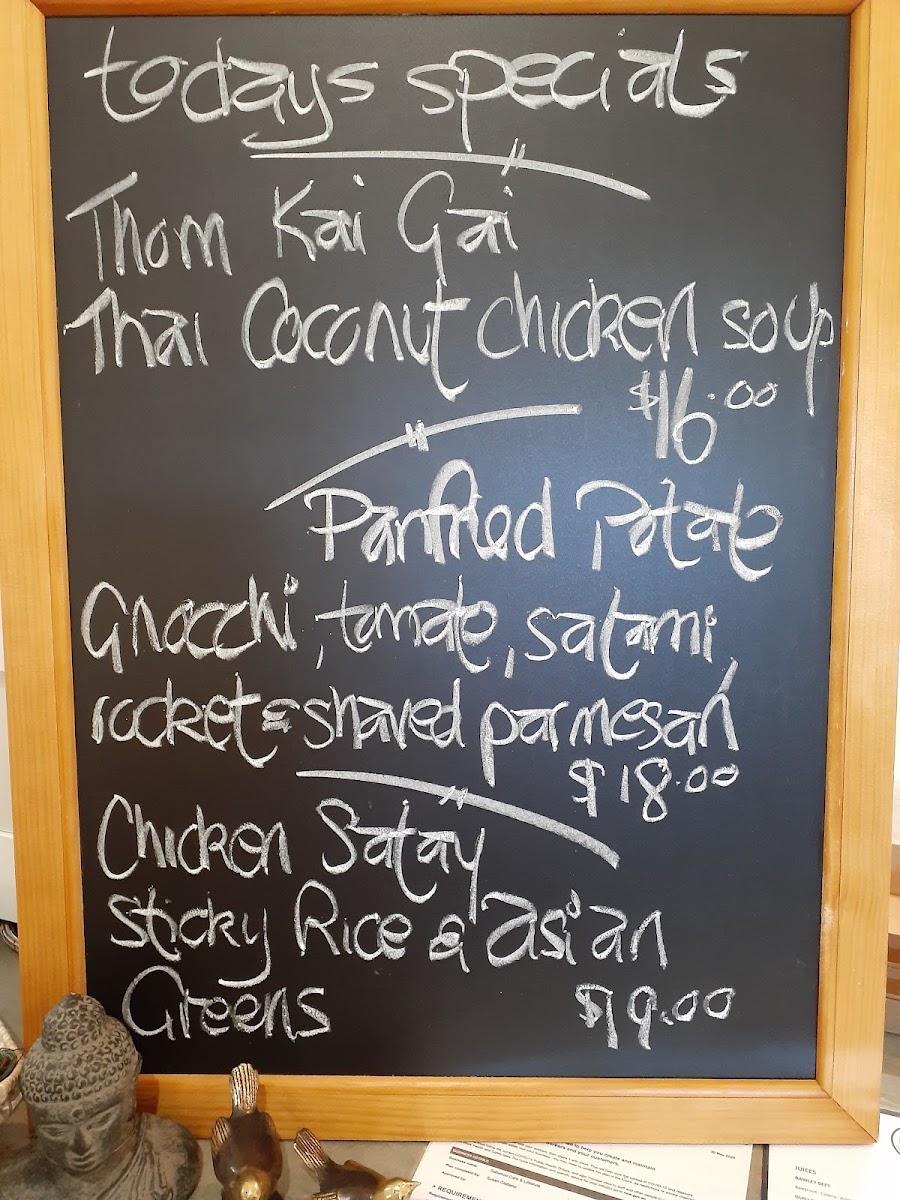 todays specials
Thom Kai Gai
Thai Coconut chicken soup
$16.00
Panfried Potato
Gnocchi, tomato, salami,
rocket & shaved parmesan
$18.00
Chicken Satay
Sticky Rice & asian
Greens $19.00
JUICES